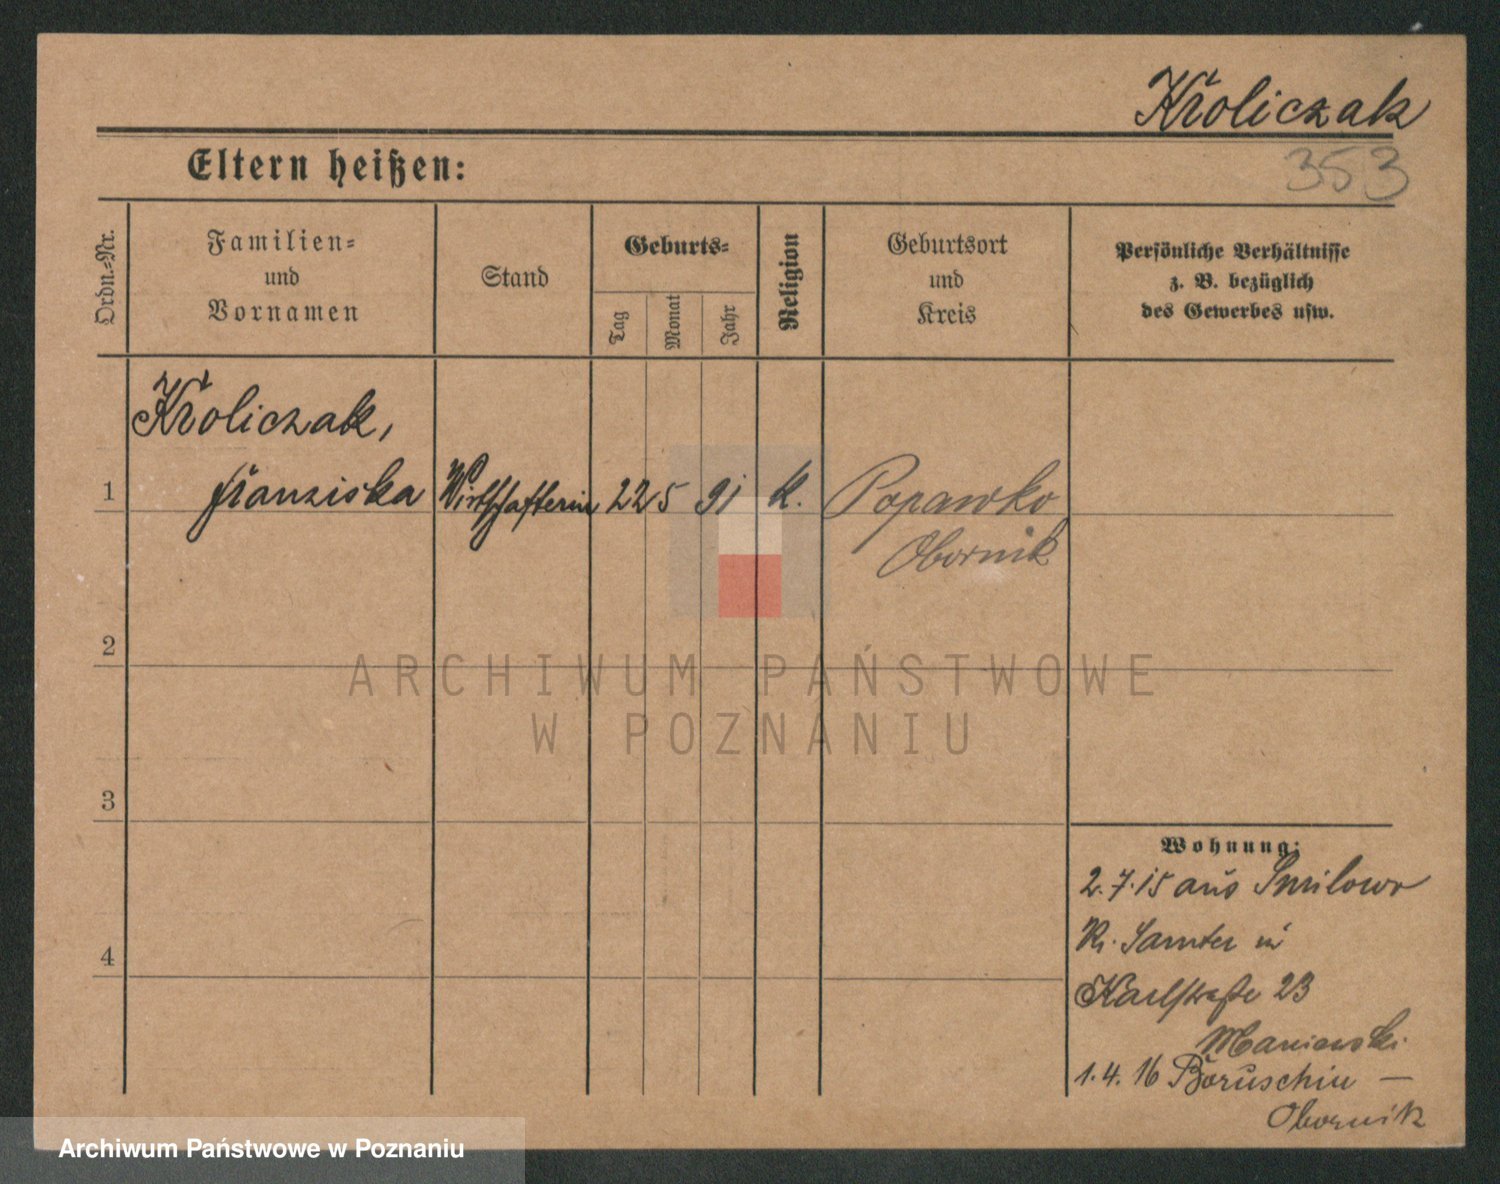 Kroliczak
353
Eltern heißen:
Ordn.-Nr.
Familien-
und
Vornamen
Stand
Geburts-
Tag
Monat
Jahr
Religion
Geburtsort
und
Kreis
Persönliche Verhältnisse
z. B. bezüglich
des Gewerbes usw.
Kroliczak,
1 Franziska Wirthschafterin 22 5 91 k. Popawko
Obornik
2
ARCHIWUM PAŃSTWOWE
W POZNANIU
3
Wohnung:
2.7.15 aus Smilowo
4
Kr. Samter in
Karlstraße 23
Maniewski
1.4.16 Boruschin —
Obornik
Archiwum Państwowe w Poznaniu